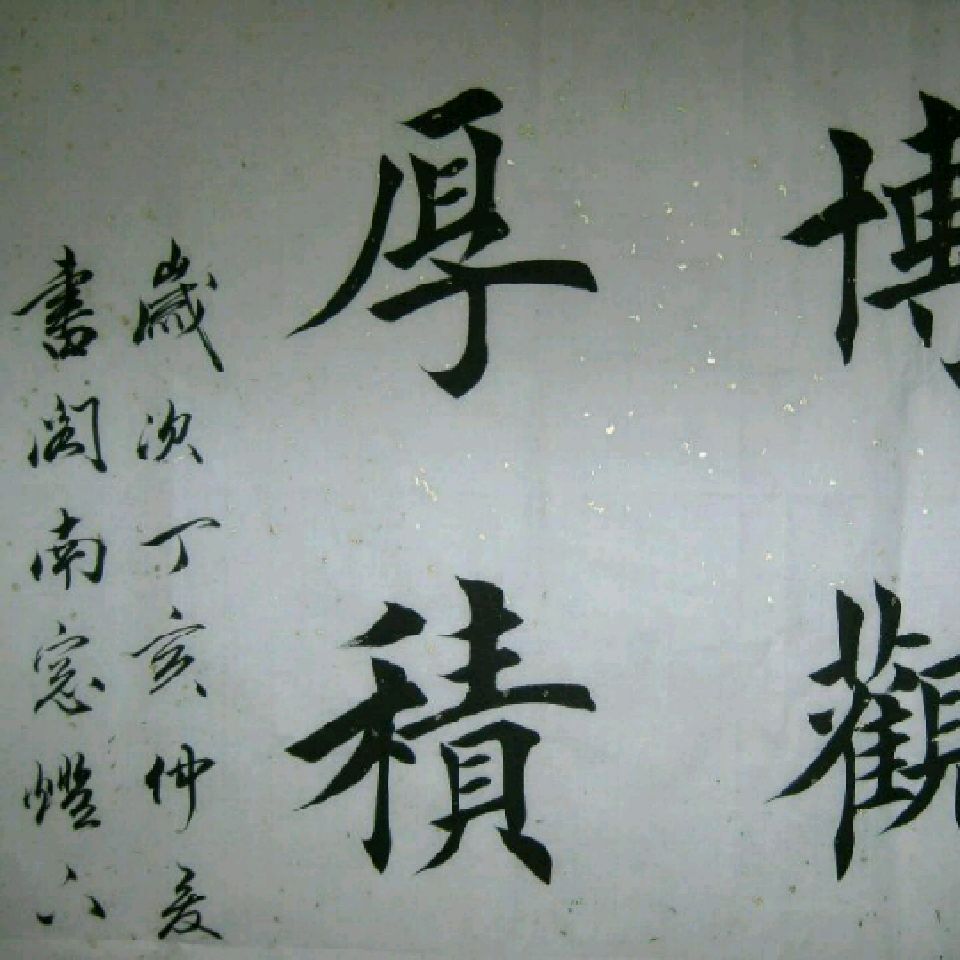 博觀
厚積
歲次丁亥仲夏
書閣南窓燈六